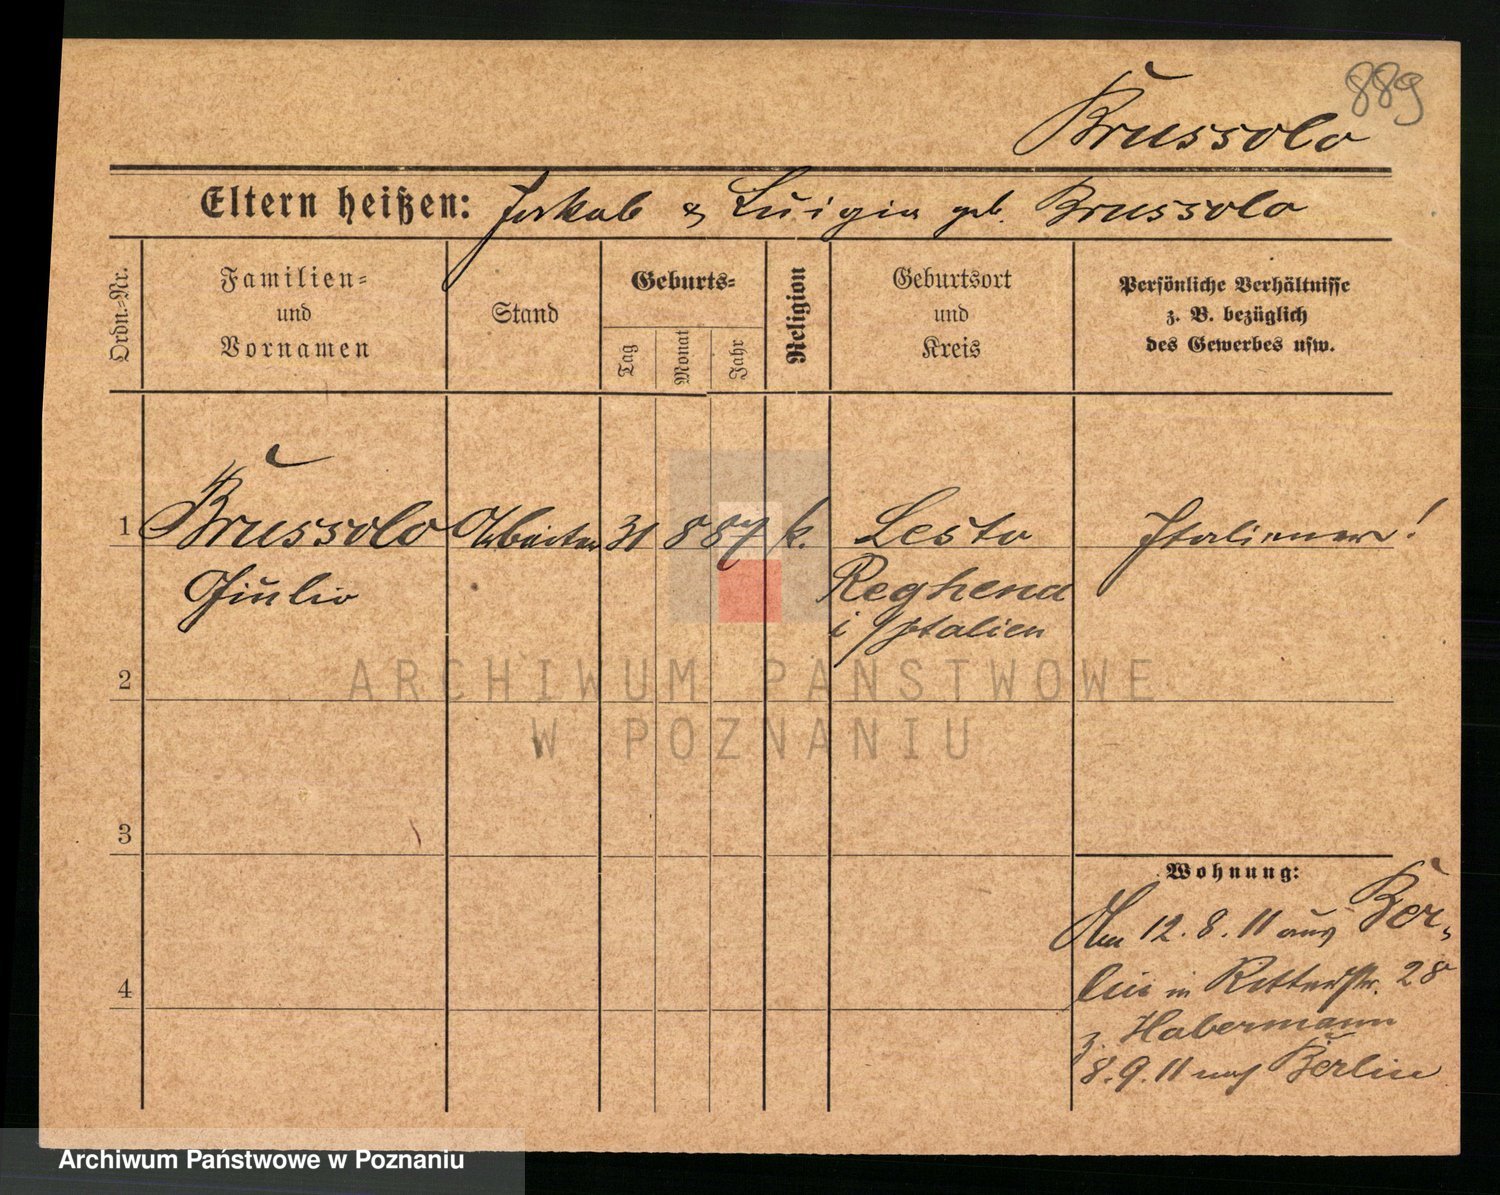 889
Brussolo
Eltern heißen: Jakob & Luigia geb. Brussolo
Ordn.-Nr.
Familien-
und
Vornamen
Stand
Geburts-
Tag
Monat
Jahr
Religion
Geburtsort
und
Kreis
Persönliche Verhältnisse
z. B. bezüglich
des Gewerbes usw.
1 Brussolo Arbeiter 31 8 87 k. Sesto Italiener!
Giulio Reghena
i/Italien
2
ARCHIWUM PAŃSTWOWE
W POZNANIU
3
Wohnung:
Am 12. 8. 11 aus Ber-
lin in Ritterstr. 28
4
z. Habermann
8. 9. 11 nach Berlin
Archiwum Państwowe w Poznaniu